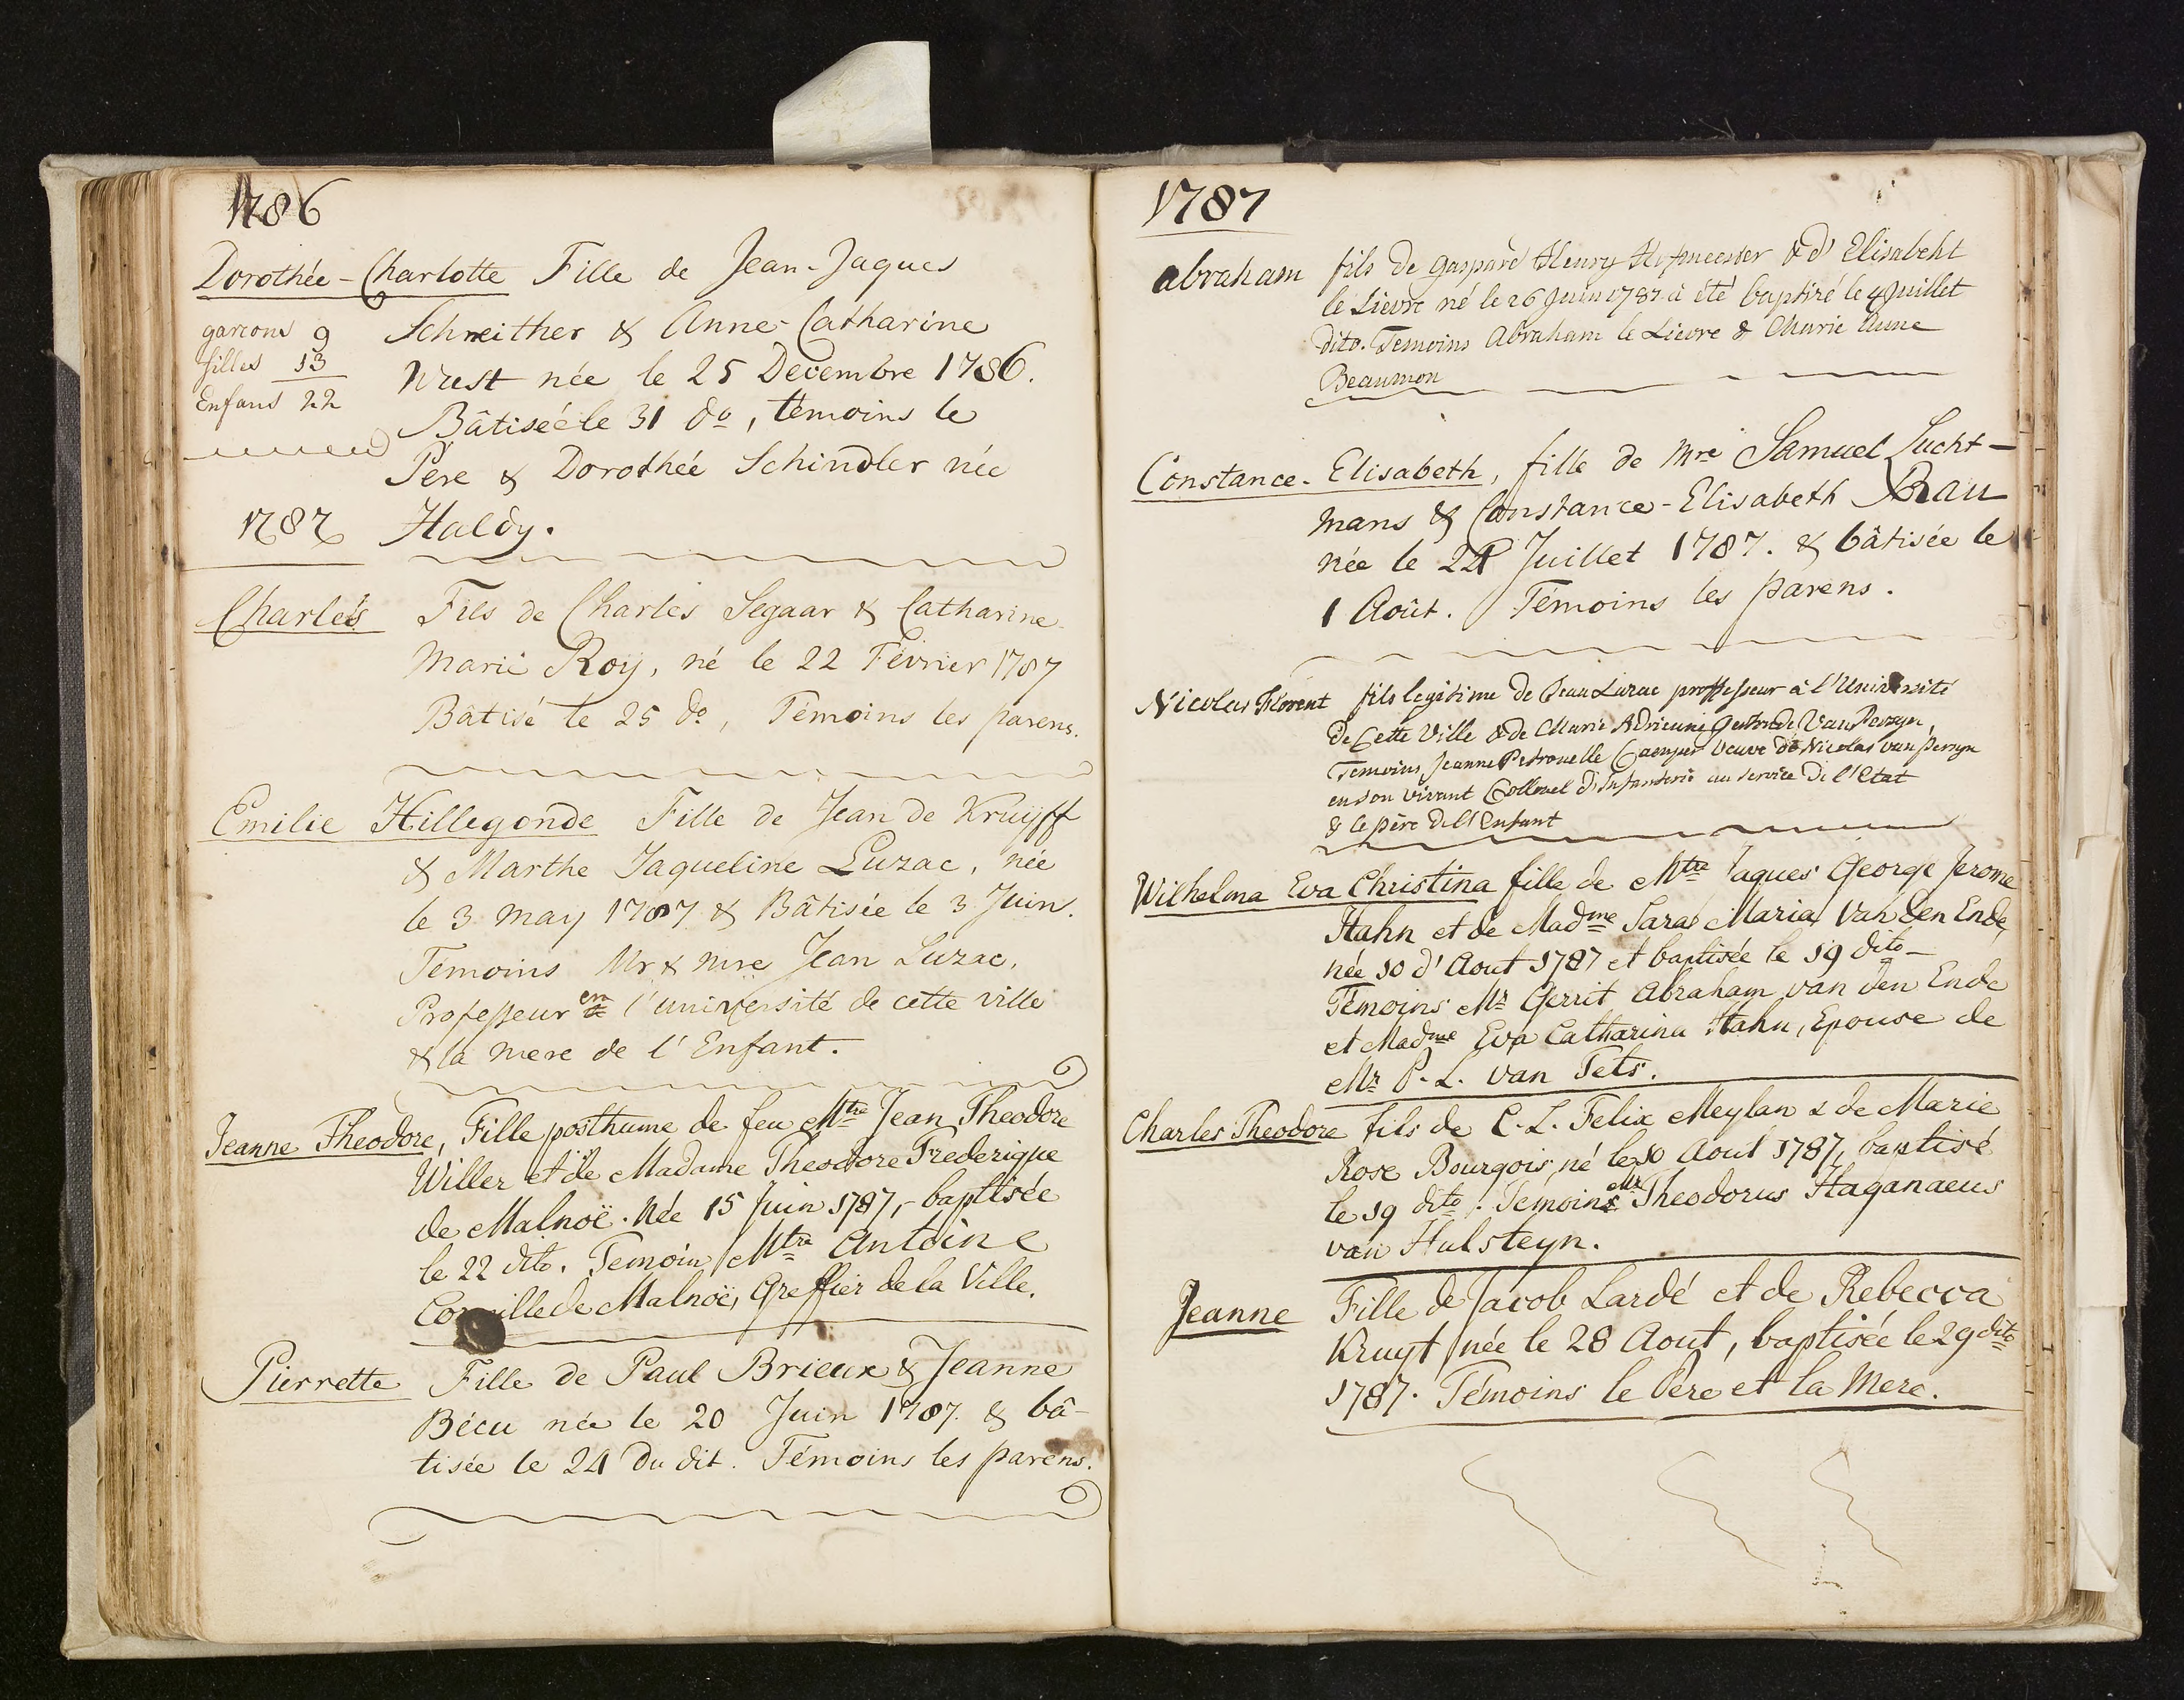 1786
Dorothée-Charlotte Fille de Jean-Jaques
garcons 9
filles 13
Enfans 22
Schreither & Anne-Catharine
Wust née le 25 Decembre 1786.
Bâtisée le 31 do, témoins le
Père & Dorothée Schindler née
Haldy.
1787
Charles Fils de Charles Segaar & Catharine
Marie Roy, né le 22 Février 1787
Bâtisé le 25 do, Témoins les parens.
Emilie Hillegonde Fille de Jean de Kruyff
& Marthe Jaqueline Luzac, née
le 3 may 1787 & Bâtisée le 3 Juin.
Témoins Mr & mre Jean Luzac,
Professeur en l'université de cette ville
& la mere de l'Enfant.
Jeanne Theodore, Fille posthume de feu Mtre Jean Theodore
Willer et de Madame Theodore Frederique
de Malnoë. Née 15 Juin 1787, baptisée
le 22 dito. Temoin Mtre Antoine
de Malnoë, Greffier de la Ville.
Pierrette Fille de Paul Brieux & Jeanne
Bécu née le 20 Juin 1787. & bâ-
tisée le 24 du dit. Témoins les parens.
1787
abraham fils de gaspard Henry Hofmeester & d'Elisabeht
le Lievre né le 26 Juin 1787 à été baptizé le 4 Juillet
dito. Temoins Abraham le Lievre & Marie Anne
Beaumon
Constance-Elisabeth, fille de mre Samuel Lucht-
mans & Constance-Elisabeth Rau
née le 24 Juillet 1787. & bâtisée le
1 Août. Témoins les parens.
Nicolas Florent fils legitime de Jean Luzac professeur à l'Université
de Cette Ville & de Marie Adrienne Gertrude Van Perzyn,
Temoins Jeanne Petronelle Caemper Veuve de Nicolas van Perzyn
en son vivant Collonel d'Infanterie au service de l'Etat
& le père de l'Enfant
Wilhelma Eva Christina fille de Mtre Jaques George Jerome
Hahn et de Madme Sara Maria Van den Ende,
née 10 d'Aout 1787 et baptisée le 19 dito
Temoins Mr Gerrit Abraham van den Ende
et Madme Eva Catharina Hahn, Epouse de
Mr P. L. van Tets.
Charles Theodore fils de C. L. Felix Meylan & de Marie
Rose Bourgois, né le 10 Aout 1787, baptisé
le 19 dito. Temoins Mr Theodorus Haganaeus
van Hulsteyn.
Jeanne Fille de Jacob Lardé et de Rebecca
Kruyt née le 28 Aout, baptisée le 29 dito
1787. Témoins le Père et la Mere.